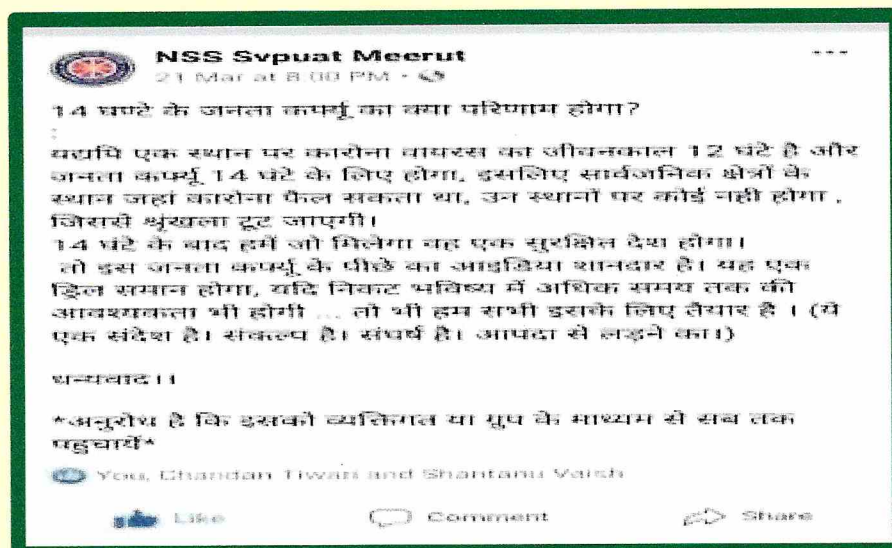 NSS Svpuat Meerut
21 Mar at 8:00 PM
14 घण्टे के जनता कर्फ्यू का क्या परिणाम होगा?
:
यद्यपि एक स्थान पर कारोना वायरस का जीवनकाल 12 घंटे है और
जनता कर्फ्यू 14 घंटे के लिए होगा, इसलिए सार्वजनिक क्षेत्रों के
स्थान जहां कारोना फैल सकता था, उन स्थानों पर कोई नही होगा ,
जिससे श्रृंखला टूट जाएगी।
14 घंटे के बाद हमें जो मिलेगा वह एक सुरक्षित देश होगा।
तो इस जनता कर्फ्यू के पीछे का आइडिया शानदार है। यह एक
ड्रिल समान होगा, यदि निकट भविष्य में अधिक समय तक की
आवश्यकता भी होगी ... तो भी हम सभी इसके लिए तैयार है । (ये
एक संदेश है। संकल्प है। संघर्ष है। आपदा से लड़ने का।)
धन्यवाद।।
*अनुरोध है कि इसको व्यक्तिगत या ग्रुप के माध्यम से सब तक
पहुचायें*
You, Chandan Tiwari and Shantanu Vaish
Like Comment Share